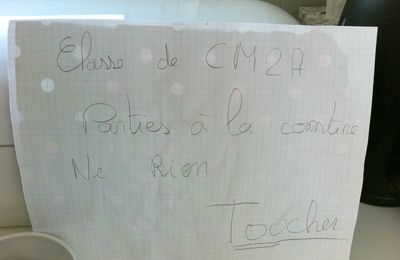 Classe de CM2A
Parties à la cantine
Ne Rien
Toocher